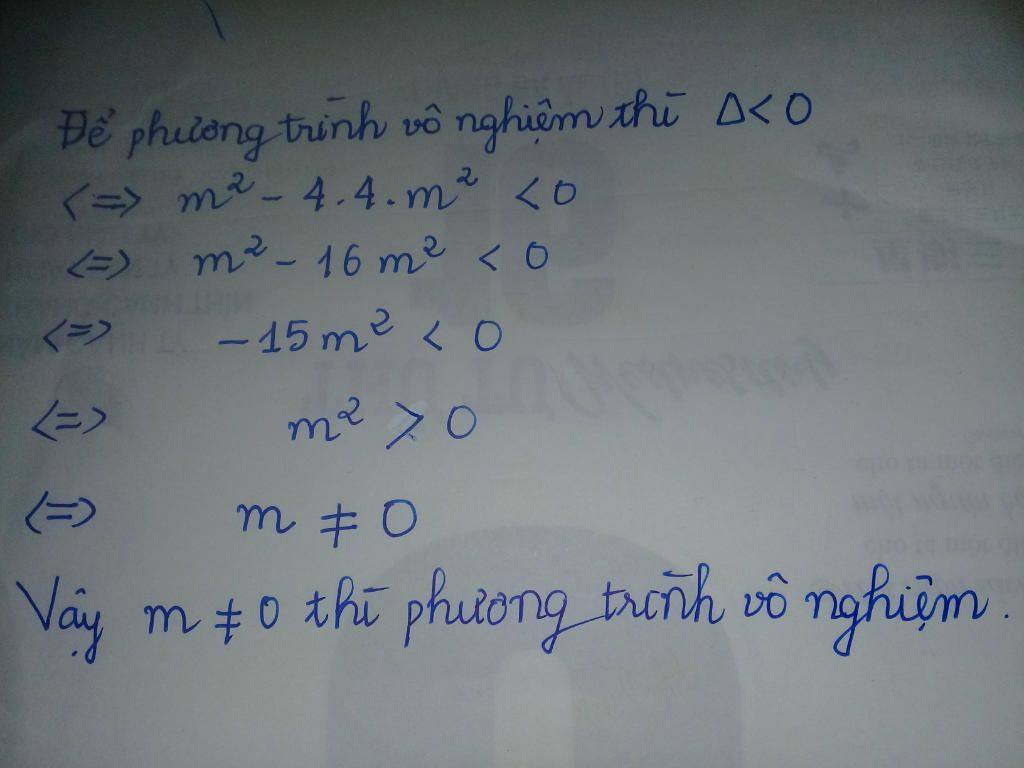 Để phương trình vô nghiệm thì Δ < 0
<=> m² - 4.4.m² < 0
<=> m² - 16m² < 0
<=> -15m² < 0
<=> m² > 0
<=> m ≠ 0
Vậy m ≠ 0 thì phương trình vô nghiệm.